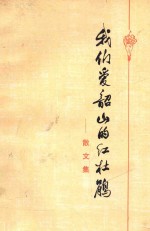 我们爱韶山的红杜鹃
散文集